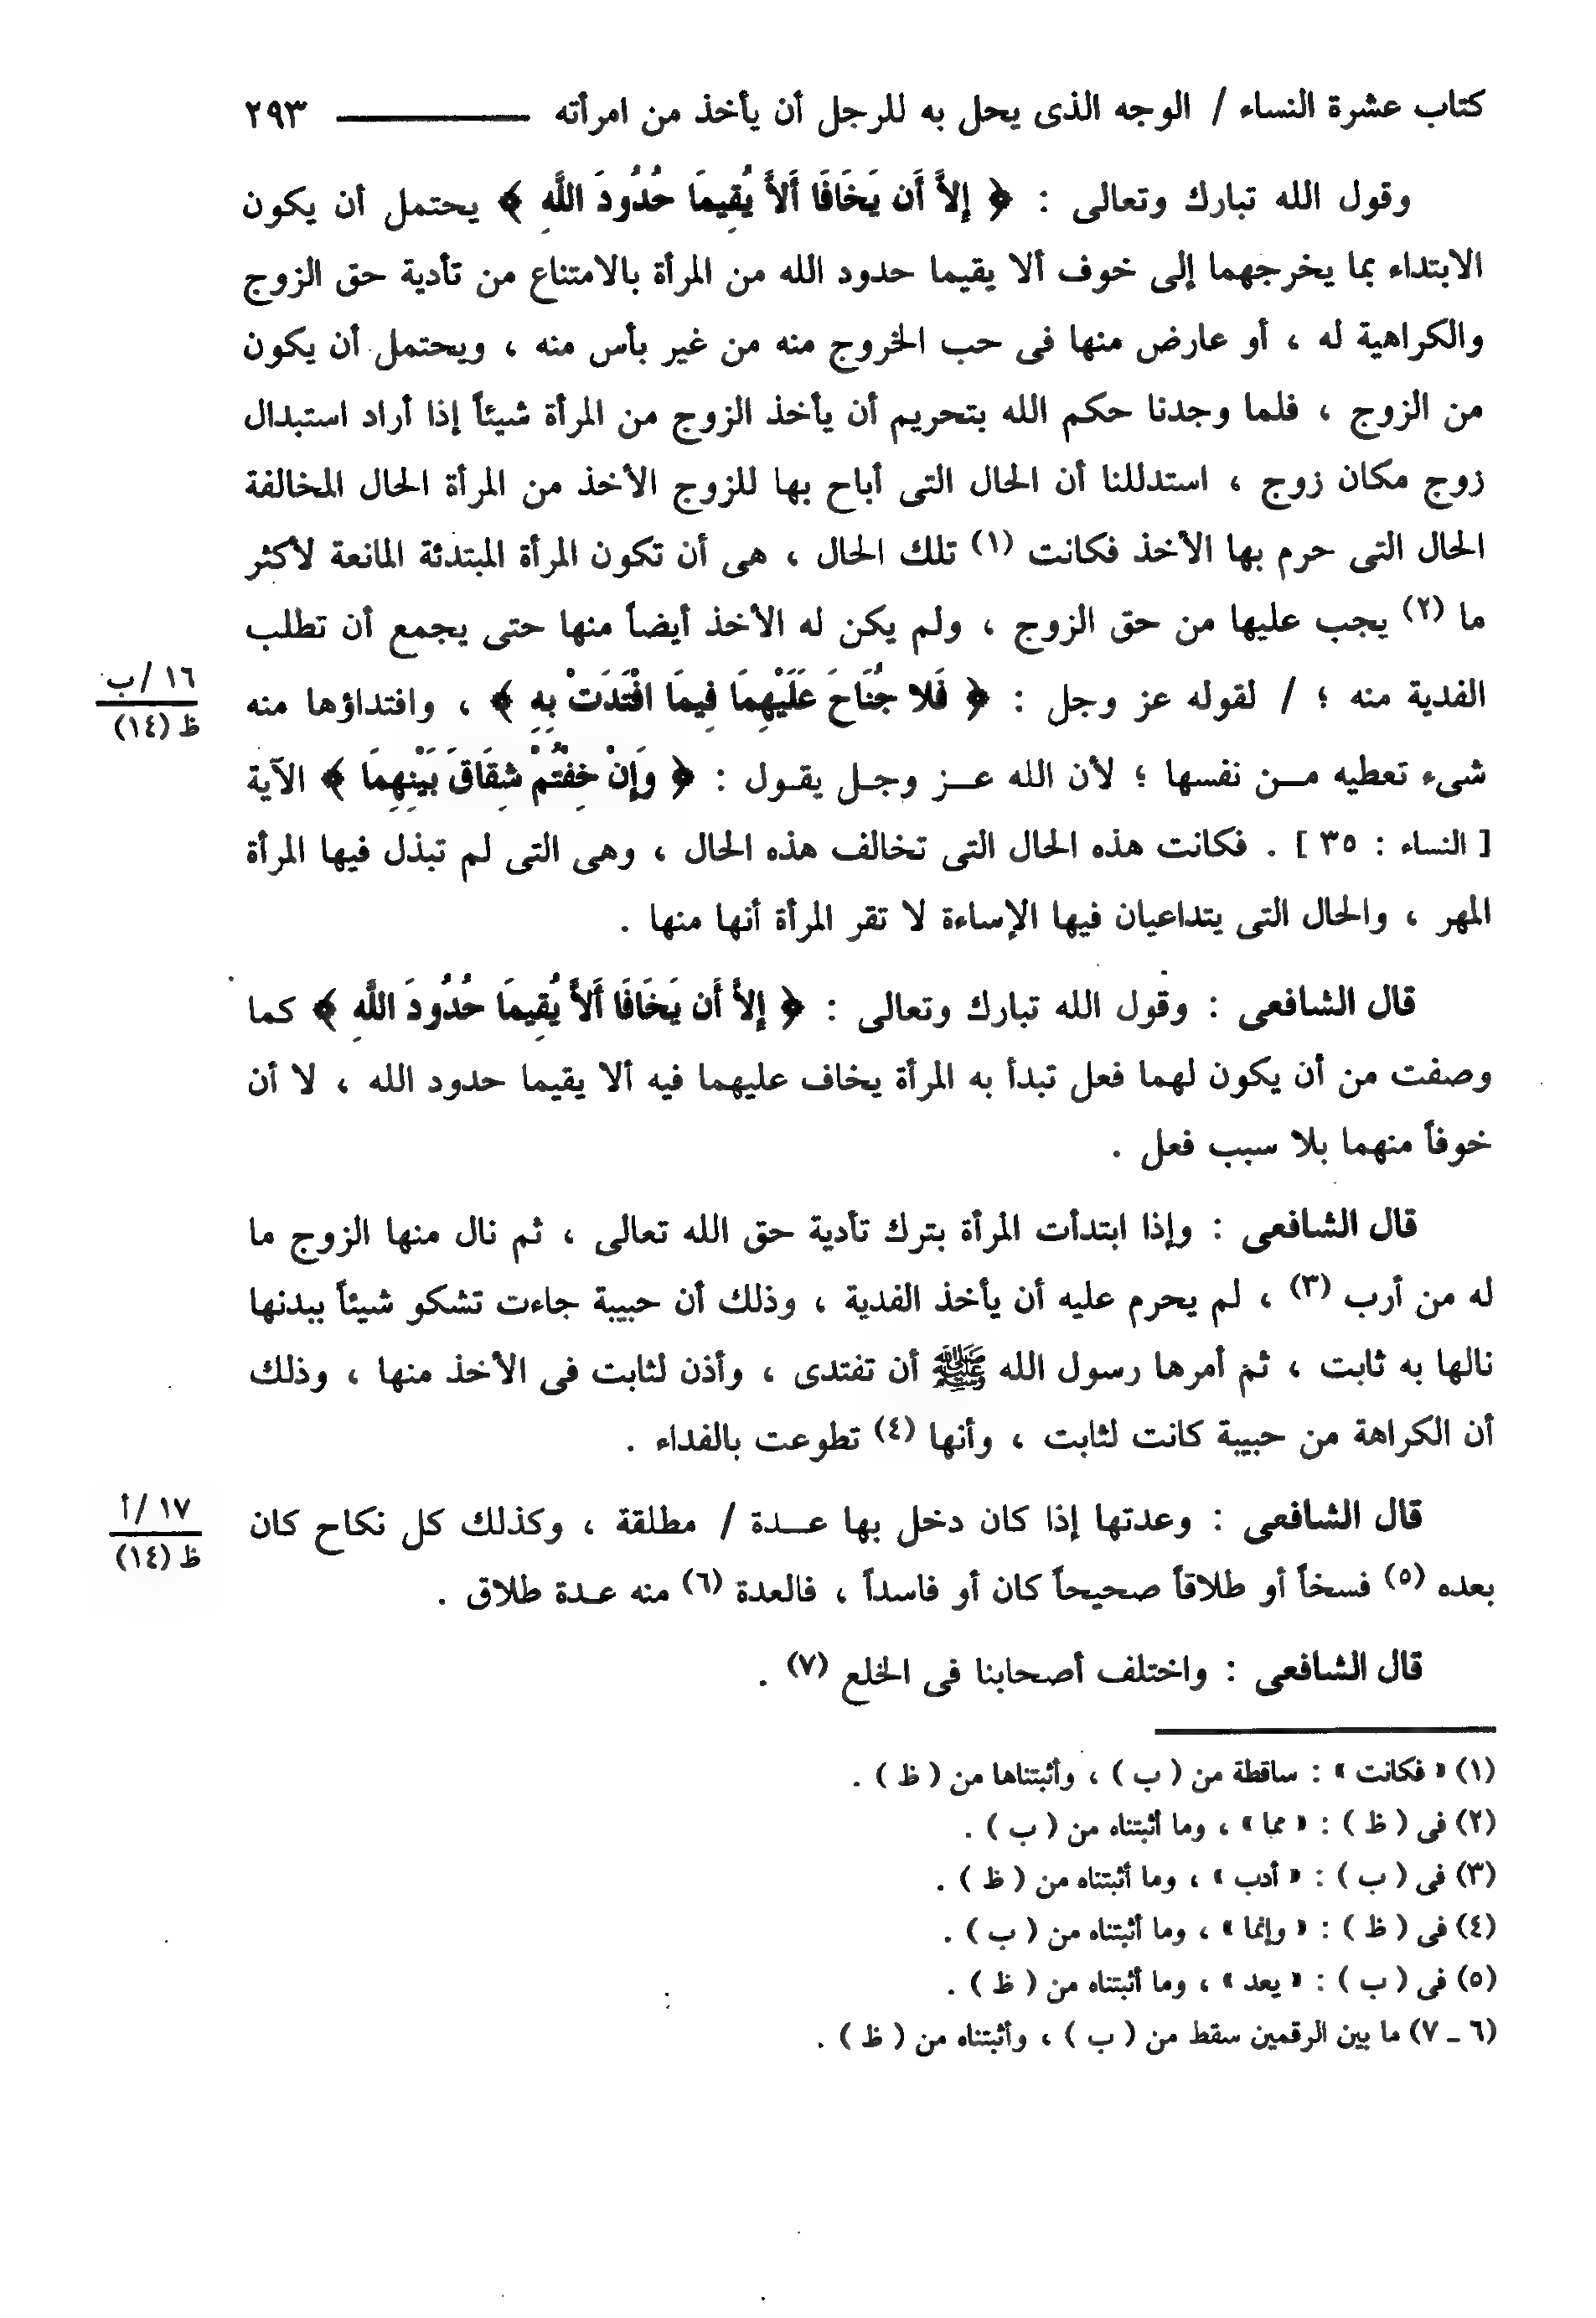 كتاب عشرة النساء / الوجه الذى يحل به للرجل أن يأخذ من امرأته ــــــــــ ٢٩٣
وقول الله تبارك وتعالى : ﴿ إِلاَّ أَن يَخَافَا أَلاَّ يُقِيمَا حُدُودَ اللَّهِ ﴾ يحتمل أن يكون
الابتداء بما يخرجهما إلى خوف ألا يقيما حدود الله من المرأة بالامتناع من تأدية حق الزوج
والكراهية له ، أو عارض منها فى حب الخروج منه من غير بأس منه ، ويحتمل أن يكون
من الزوج ، فلما وجدنا حكم الله بتحريم أن يأخذ الزوج من المرأة شيئاً إذا أراد استبدال
زوج مكان زوج ، استدللنا أن الحال التى أباح بها للزوج الأخذ من المرأة الحال المخالفة
الحال التى حرم بها الأخذ فكانت (١) تلك الحال ، هى أن تكون المرأة المبتدئة المانعة لأكثر
ما (٢) يجب عليها من حق الزوج ، ولم يكن له الأخذ أيضاً منها حتى يجمع أن تطلب
الفدية منه ؛ / لقوله عز وجل : ﴿ فَلا جُنَاحَ عَلَيْهِمَا فِيمَا افْتَدَتْ بِهِ ﴾ ، وافتداؤها منه
١٦ /ب
ظ (١٤)
شىء تعطيه مـــن نفسها ؛ لأن الله عـــز وجـل يقـول : ﴿ وَإِنْ خِفْتُمْ شِقَاقَ بَيْنِهِمَا ﴾ الآية
[ النساء : ٣٥ ] . فكانت هذه الحال التى تخالف هذه الحال ، وهى التى لم تبذل فيها المرأة
المهر ، والحال التى يتداعيان فيها الإساءة لا تقر المرأة أنها منها .
قال الشافعى : وقول الله تبارك وتعالى : ﴿ إِلاَّ أَن يَخَافَا أَلاَّ يُقِيمَا حُدُودَ اللَّهِ ﴾ كما
وصفت من أن يكون لهما فعل تبدأ به المرأة يخاف عليهما فيه ألا يقيما حدود الله ، لا أن
خوفاً منهما بلا سبب فعل .
قال الشافعى : وإذا ابتدأت المرأة بترك تأدية حق الله تعالى ، ثم نال منها الزوج ما
له من أرب (٣) ، لم يحرم عليه أن يأخذ الفدية ، وذلك أن حبيبة جاءت تشكو شيئاً ببدنها
نالها به ثابت ، ثم أمرها رسول الله ﷺ أن تفتدى ، وأذن لثابت فى الأخذ منها ، وذلك
أن الكراهة من حبيبة كانت لثابت ، وأنها (٤) تطوعت بالفداء .
قال الشافعى : وعدتها إذا كان دخل بها عـــدة / مطلقة ، وكذلك كل نكاح كان
١٧ /أ
ظ (١٤)
بعده (٥) فسخاً أو طلاقاً صحيحاً كان أو فاسداً ، فالعدة (٦) منه عـدة طلاق .
قال الشافعى : واختلف أصحابنا فى الخلع (٧) .
(١) « فكانت » : ساقطة من ( ب ) ، وأثبتناها من ( ظ ) .
(٢) فى ( ظ ) : « مما » ، وما أثبتناه من ( ب ) .
(٣) فى ( ب ) : « أدب » ، وما أثبتناه من ( ظ ) .
(٤) فى ( ظ ) : « وإنما » ، وما أثبتناه من ( ب ) .
(٥) فى ( ب ) : « يعد » ، وما أثبتناه من ( ظ ) .
(٦ ـ ٧) ما بين الرقمين سقط من ( ب ) ، وأثبتناه من ( ظ ) .